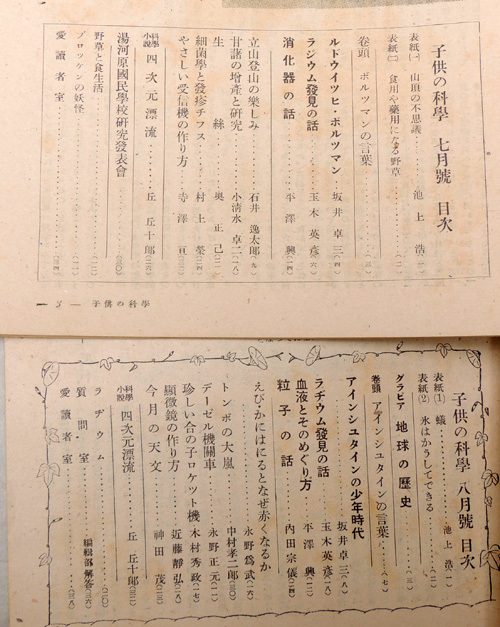 子供の科學 七月號 目次
表紙(一) 山頂の不思議………池上 浩(一)
表紙(二) 食用や藥用になる野草………(一)
卷頭 ボルツマンの言葉………
ルドウイツヒ・ボルツマン………坂井卓三(四)
ラジウム發見の話………玉木英彥(六)
消化器の話………平澤 興(一四)
立山登山の樂しみ………石井逸太郎(九)
甘諸の增產と研究………小淸水卓二(一八)
生絲………奥 正己(二一)
細菌學と發疹チフス………村上 榮(二四)
やさしい受信機の作り方………寺澤
科學小說 四次元漂流………丘 丘十郞(二六)
湯河原國民學校硏究發表會………(三〇)
野草と食生活………(一一)
ブロツケンの妖怪………(一二)
愛讀者室………(三四)
— 3 — 子供の科學
子供の科學 八月號 目次
表紙(1) 蟻………池上 浩(一)
表紙(2) 氷はかうしてできる………(一)
グラビア 地球の歷史………(三)
卷頭 アインシユタインの言葉………(七)
アインシユタインの少年時代………坂井卓三(八)
ラヂウム發見の話………玉木英彥(八)
血液とそのめぐり方………平澤 興(一二)
粒子の話………內田宗儀(二四)
えびやかにはにるとなぜ赤くなるか………永野爲武(二六)
トンボの大嵐………中村孝二郞(三〇)
デーゼル機關車………永野正元(一一)
珍しい合の子ロケツト機………木村秀政(一七)
顯微鏡の作り方………近藤靜弘(二八)
今月の天文………神田 茂(二三)
科學小說 四次元漂流………丘 丘十郞(三二)
ラヂウム………(二〇)
質問室………編輯部解答(三六)
愛讀者室………(三八)